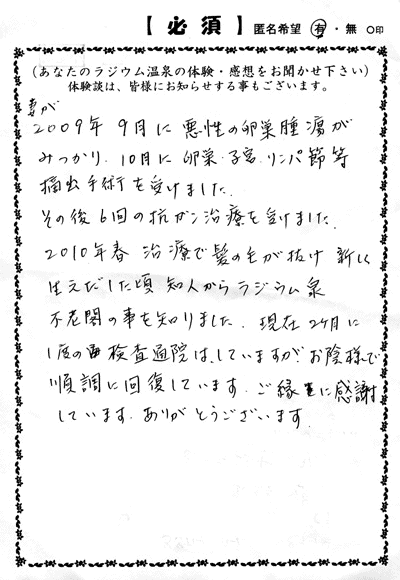 【必須】 匿名希望 有・無 ○印
(あなたのラジウム温泉の体験・感想をお聞かせ下さい)
体験談は、皆様にお知らせする事もございます。
妻が
2009年 9月に 悪性の卵巣腫瘍が
みつかり. 10月に 卵巣・子宮.リンパ節等
摘出手術を受けました.
その後 6回の抗ガン治療を受けました.
2010年春 治療で髪の毛が抜け 新しく
生えだした頃 知人から ラジウム泉
不老閣の事を知りました. 現在 2ヶ月に
1度の 検査通院は、していますが お陰様で
順調に回復しています. ご縁に感謝
しています. ありがとうございます.